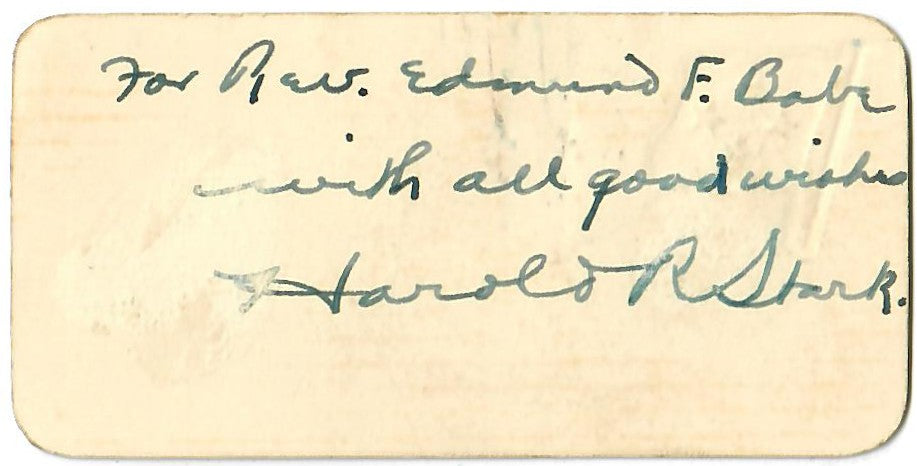 For Rev. Edmund F. Babe
with all good wishes
Harold R Stark.